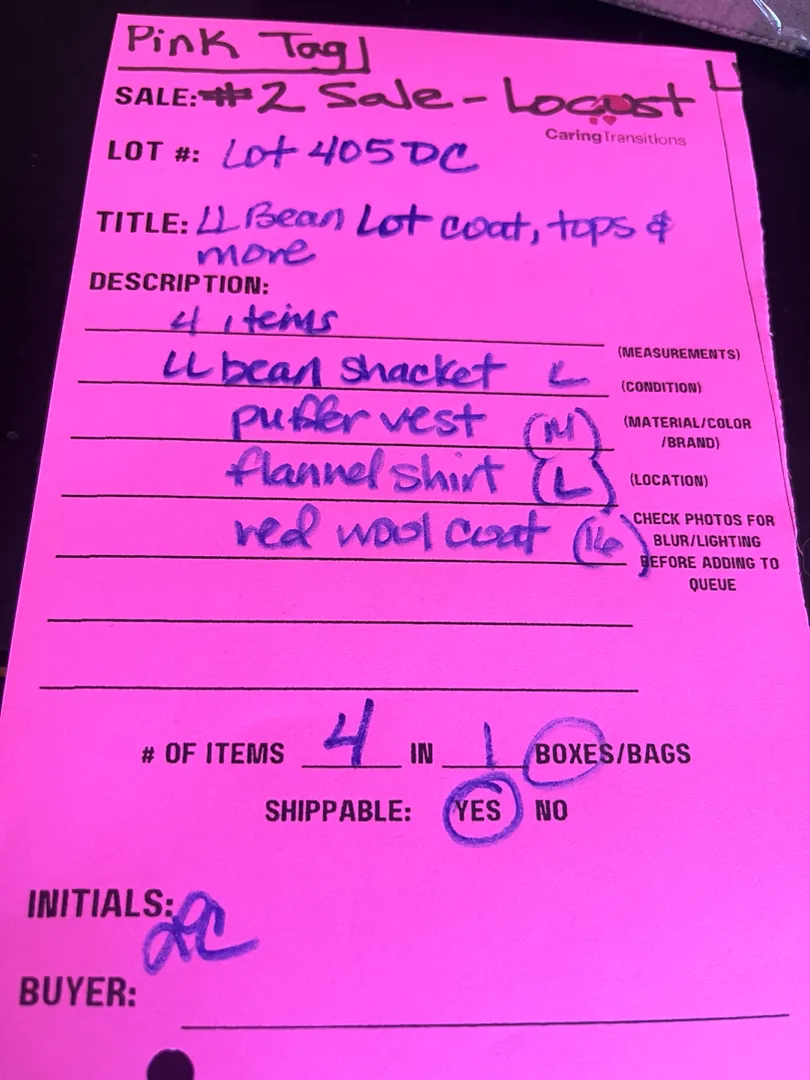 Pink Tag
SALE: #2 Sale - Locust
CaringTransitions
LOT #: Lot 405 DC
TITLE: LL Bean Lot coat, tops &
more
DESCRIPTION:
4 items
(MEASUREMENTS)
LL bean shacket L
(CONDITION)
puffer vest (M)
(MATERIAL/COLOR
/BRAND)
flannel shirt (L)
(LOCATION)
red wool coat (16)
CHECK PHOTOS FOR
BLUR/LIGHTING
BEFORE ADDING TO
QUEUE
# OF ITEMS 4 IN 1 BOXES/BAGS
SHIPPABLE: YES NO
INITIALS: DC
BUYER: